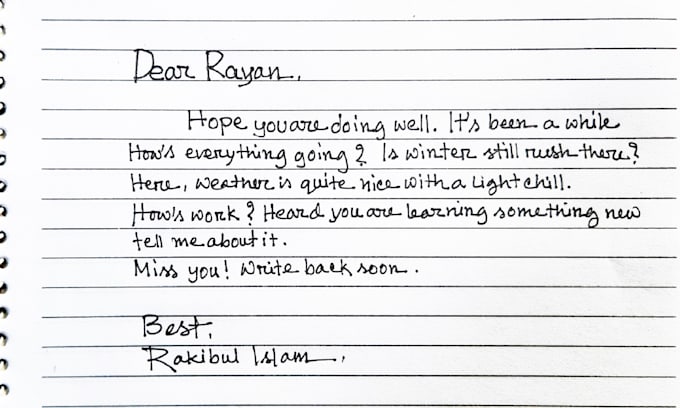 Dear Rayan,
Hope you are doing well. It's been a while
How's everything going? Is winter still rush there?
Here, weather is quite nice with a light chill.
How's work? Heard you are learning something new
tell me about it.
Miss you! Write back soon.
Best,
Rakibul Islam,